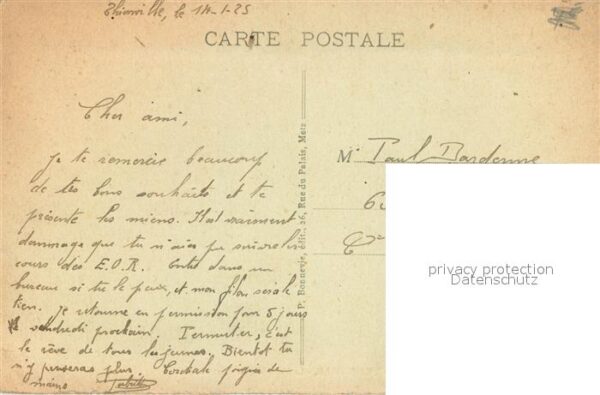 Thionville, le 14-1-25
CARTE POSTALE
Cher ami,
Je te remercie beaucoup
de tes bons souhaits et te
présente les miens. Il est vraiment
dommage que tu n'aies pu suivre les
cours des E.O.R. Entre dans un
bureau si tu le peux, et mon filon serait le
tien. Je retourne en permission pour 5 jours
vendredi prochain. Permuter, c'est
le rêve de tous les jeunes. Bientôt tu
n'y penseras plus. Cordiale poignée de
mains
P. Bonnevje, édit., 26, Rue du Palais, Metz
M. Paul Dardenne
privacy protection
Datenschutz